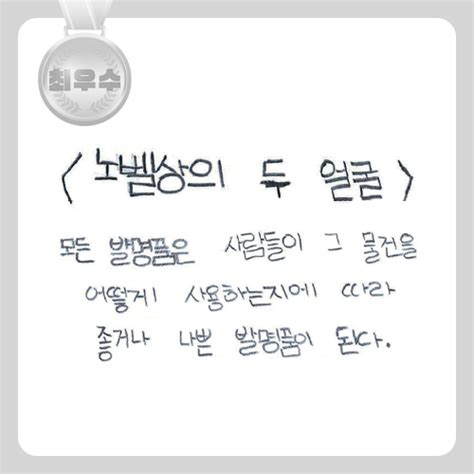 최우수
〈노벨상의 두 얼굴〉
모든 발명품은 사람들이 그 물건을
어떻게 사용하는지에 따라
좋거나 나쁜 발명품이 된다.